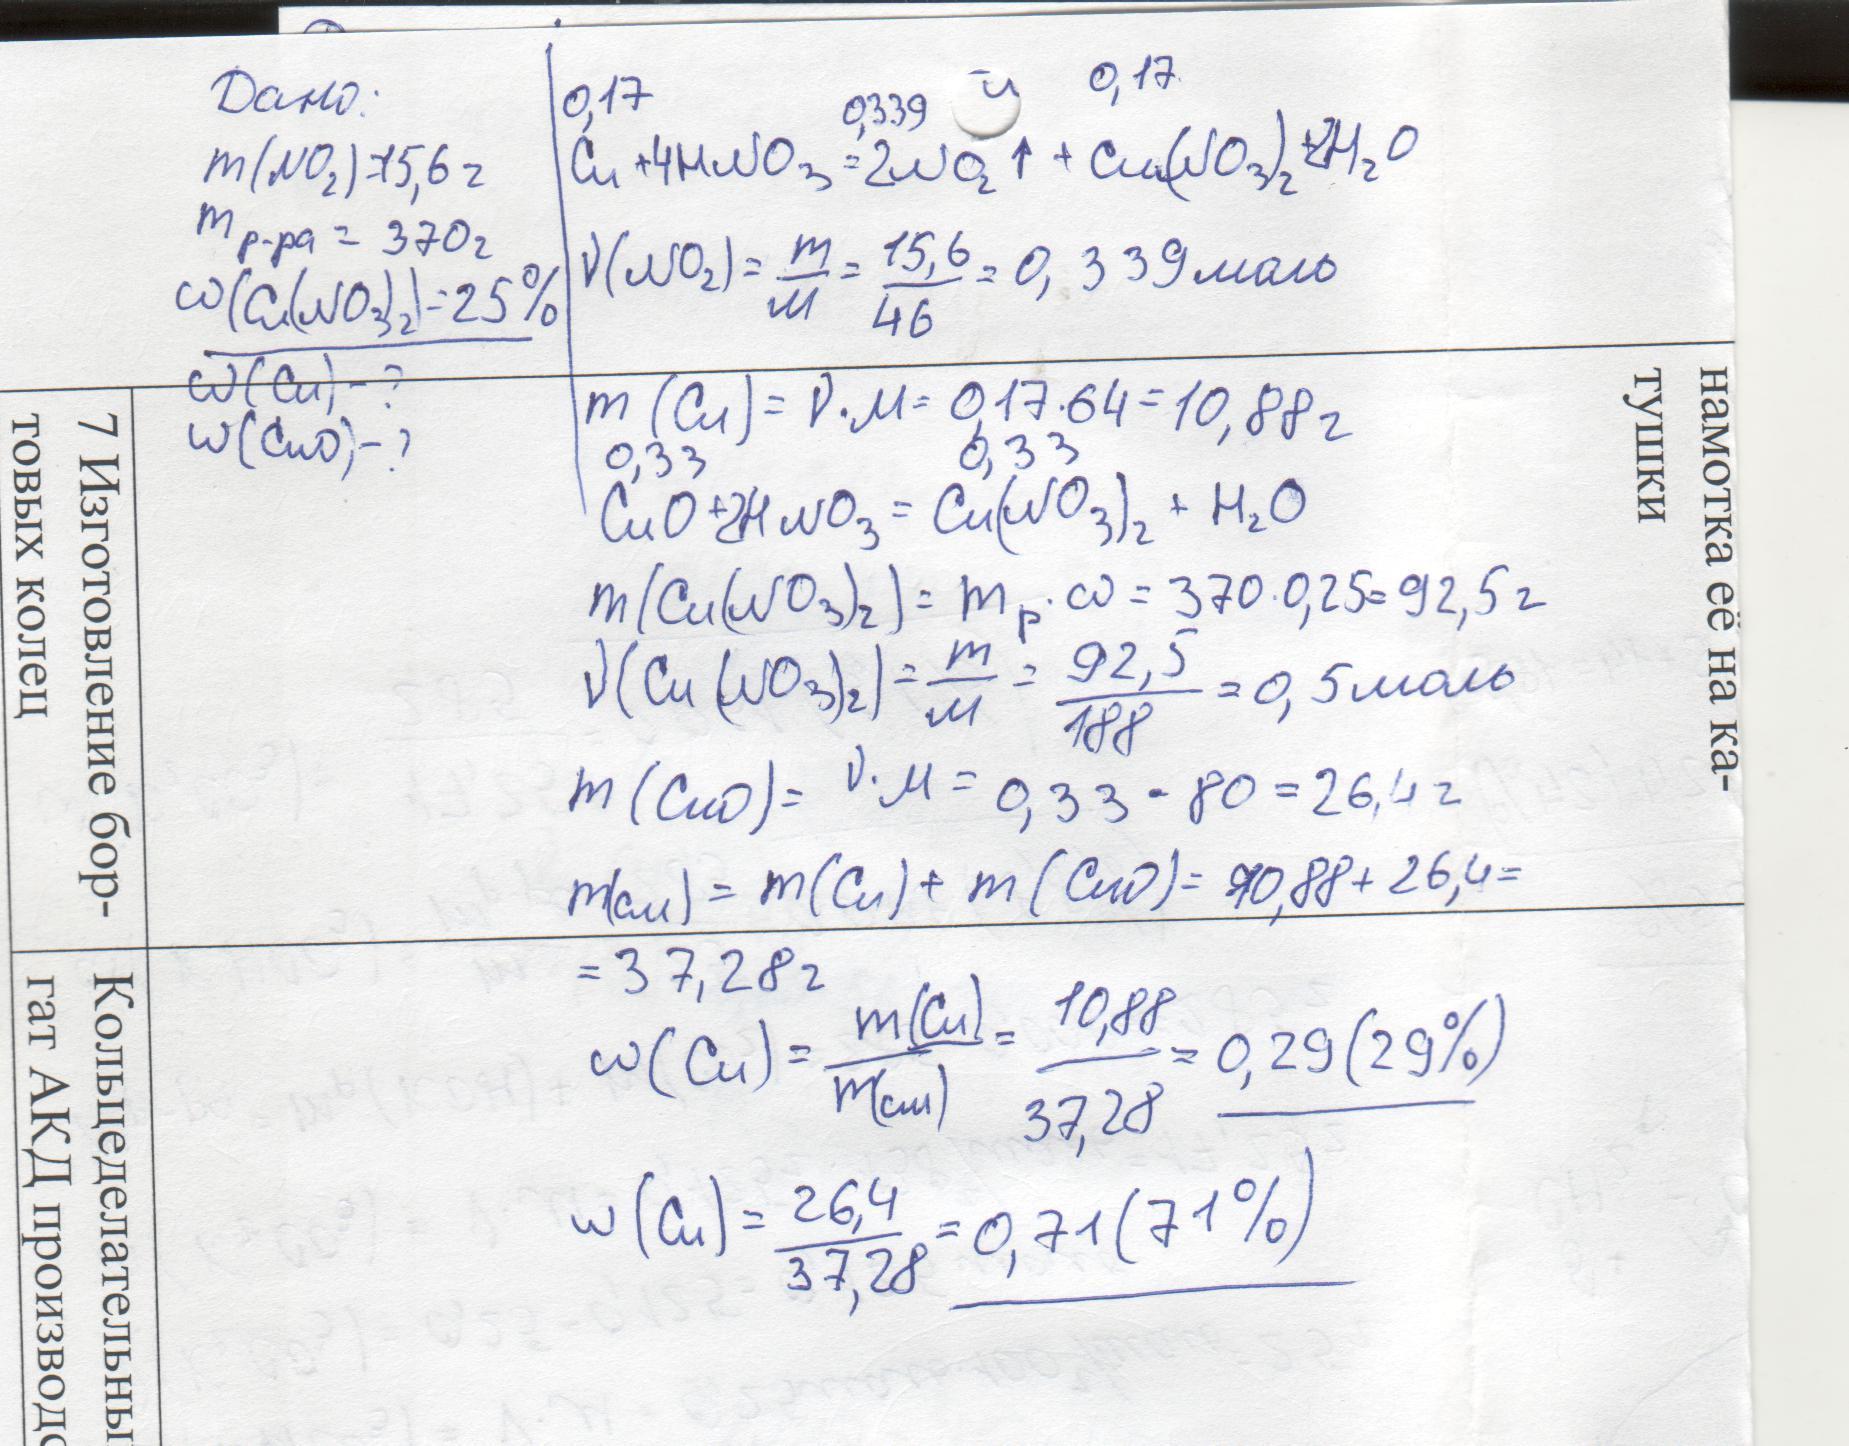 Дано:
m(NO₂)=15,6 г
m р-ра = 370 г
ω(Cu(NO₃)₂)=25%
ω(Cu)-?
ω(CuO)-?
0,17 0,339 0,17
Cu+4HNO₃=2NO₂↑ + Cu(NO₃)₂+2H₂O
ν(NO₂)= m/M = 15,6/46 = 0,339 моль
m(Cu)= ν·M= 0,17·64=10,88 г
0,33 0,33
CuO+2HNO₃ = Cu(NO₃)₂ + H₂O
m(Cu(NO₃)₂)= m р·ω = 370·0,25=92,5 г
ν(Cu(NO₃)₂)= m/M = 92,5/188 = 0,5 моль
m(CuO)= ν·M = 0,33 · 80 = 26,4 г
m(см) = m(Cu)+ m(CuO)= 10,88+ 26,4=
= 37,28 г
ω(Cu) = m(Cu)/m(см) = 10,88/37,28 = 0,29(29%)
ω(Cu)= 26,4/37,28 = 0,71(71%)
намотка её на ка-
тушки
7 Изготовление бор-
товых колец
Кольцеделательны
гат АКД производс